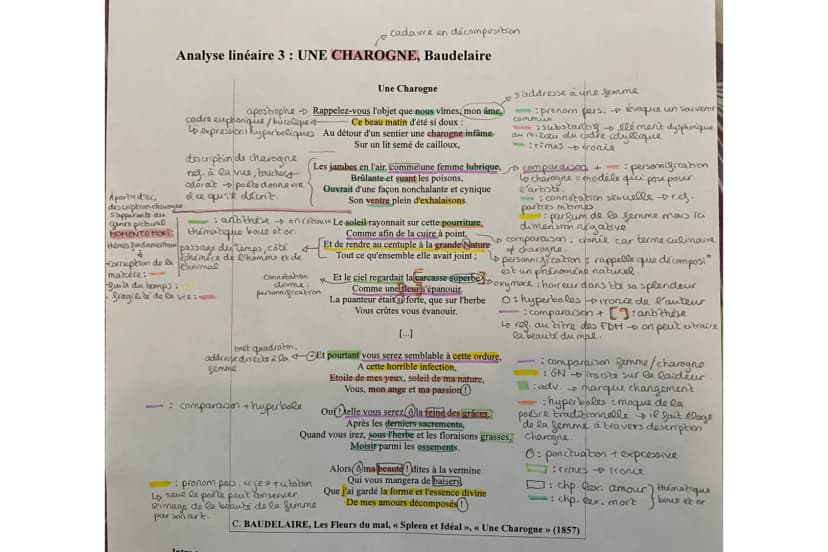 cadavre en décomposition
Analyse linéaire 3 : UNE CHAROGNE, Baudelaire
Une Charogne
s'addresse à une femme
apostrophe → Rappelez-vous l'objet que nous vîmes, mon âme,
cadre euphonique / bucolique
Ce beau matin d'été si doux :
↳ expressions hyperboliques
Au détour d'un sentier une charogne infâme
Sur un lit semé de cailloux,
: pronom pers. → évoque un souvenir
commun
: substantif → élément dysphorique
au milieu du cadre idyllique
: rimes → ironie
description de charogne
ref. à la vue, toucher,
odorat → poète donne vie
à ce qu'il décrit.
Les jambes en l'air, comme une femme lubrique,
Brûlante et suant les poisons,
Ouvrait d'une façon nonchalante et cynique
Son ventre plein d'exhalaisons.
comparaison + : personnification
↳ charogne = modèle qui pose pour
l'artiste.
: connotation sexuelle → ref.
parties intimes
: parfum de la femme mais ici
dimension négative
À partir d'ici,
description charogne
s'apparente au
genre pictural
MOMENTO MORI
thèmes fondamentaux
↳
- corruption de la
matière :
- fuite du temps :
- fragilité de la vie :
: antithèse → on retrouve
thématique boue et or.
Le soleil rayonnait sur cette pourriture,
Comme afin de la cuire à point,
Et de rendre au centuple à la grande Nature
Tout ce qu'ensemble elle avait joint ;
passage du temps, côté
éphémère de l'homme et de
l'animal
comparaison : ironie car terme culinaire
≠ charogne.
personnification : rappelle que décomposi°
est un phénomène naturel.
Connotation
donne :
personnification
Et le ciel regardait la carcasse superbe
Comme une fleur s'épanouir.
La puanteur était si forte, que sur l'herbe
Vous crûtes vous évanouir.
oxymore : horreur dans sa splendeur
O : hyperboles → ironie de l'auteur
: comparaison + [ ] : antithèse
↳ ref. au titre des FDM → on peut extraire
la beauté du mal.
[...]
tiret quadratin.
addresse directe à la
femme.
–Et pourtant vous serez semblable à cette ordure,
A cette horrible infection,
Etoile de mes yeux, soleil de ma nature,
Vous, mon ange et ma passion !
: comparaison femme/charogne
: GN → insiste sur la laideur
: adv. → marque changement
: hyperboles : moque de la
poésie traditionnelle → il fait éloge
de la femme à travers description
charogne.
: comparaison + hyperbole
Oui ! telle vous serez, ô la reine des grâces,
Après les derniers sacrements,
Quand vous irez, sous l'herbe et les floraisons grasses,
Moisir parmi les ossements.
O : ponctuation + expressive
: rimes → ironie
: chp. lex. amour
: chp. lex. mort
thématique
boue et or
Alors, ô ma beauté ! dites à la vermine
Qui vous mangera de baisers,
Que j'ai gardé la forme et l'essence divine
De mes amours décomposés !
↳ seul le poète peut conserver
l'image de la beauté de la femme
par son art.
C. BAUDELAIRE, Les Fleurs du mal, « Spleen et Idéal », « Une Charogne » (1857)